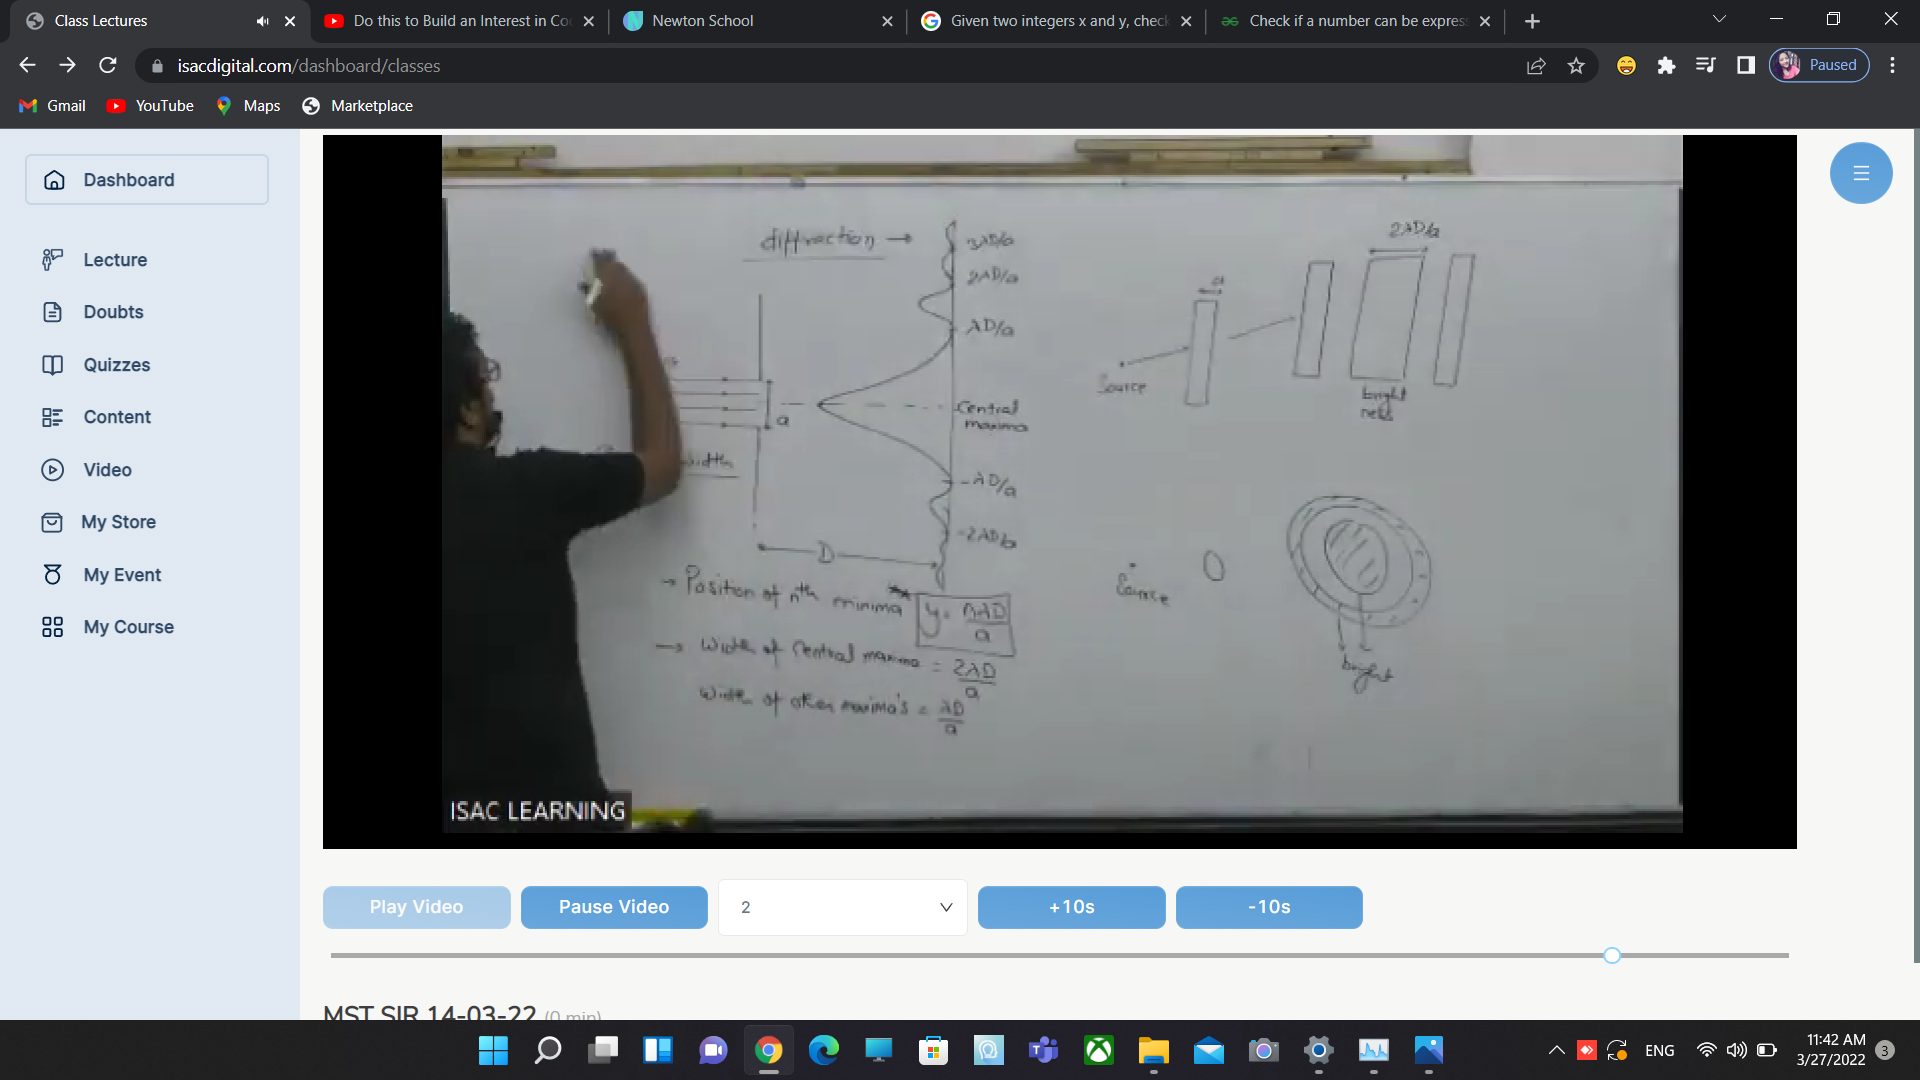 Class Lectures
Do this to Build an Interest in Co
Newton School
Given two integers x and y, check
Check if a number can be expres
isacdigital.com/dashboard/classes
Paused
Gmail
YouTube
Maps
Marketplace
Dashboard
Lecture
Doubts
Quizzes
Content
Video
My Store
My Event
My Course
diffraction →
3λD/a
2λD/a
λD/a
Central
maxima
-λD/a
-2λD/a
a
width
D
→ Position of nth minima
y = nλD/a
→ Width of Central maxima = 2λD/a
Width of other maxima's = λD/a
2λD/a
a
Source
bright
Source
bright
ISAC LEARNING
Play Video
Pause Video
2
+10s
-10s
MST SIR 14-03-22 (0 min)
ENG
11:42 AM
3/27/2022
3